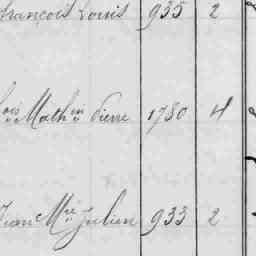 François Louis 935 2
Mathieu Pierre 1780 4
Jean Mie Julien 933 2